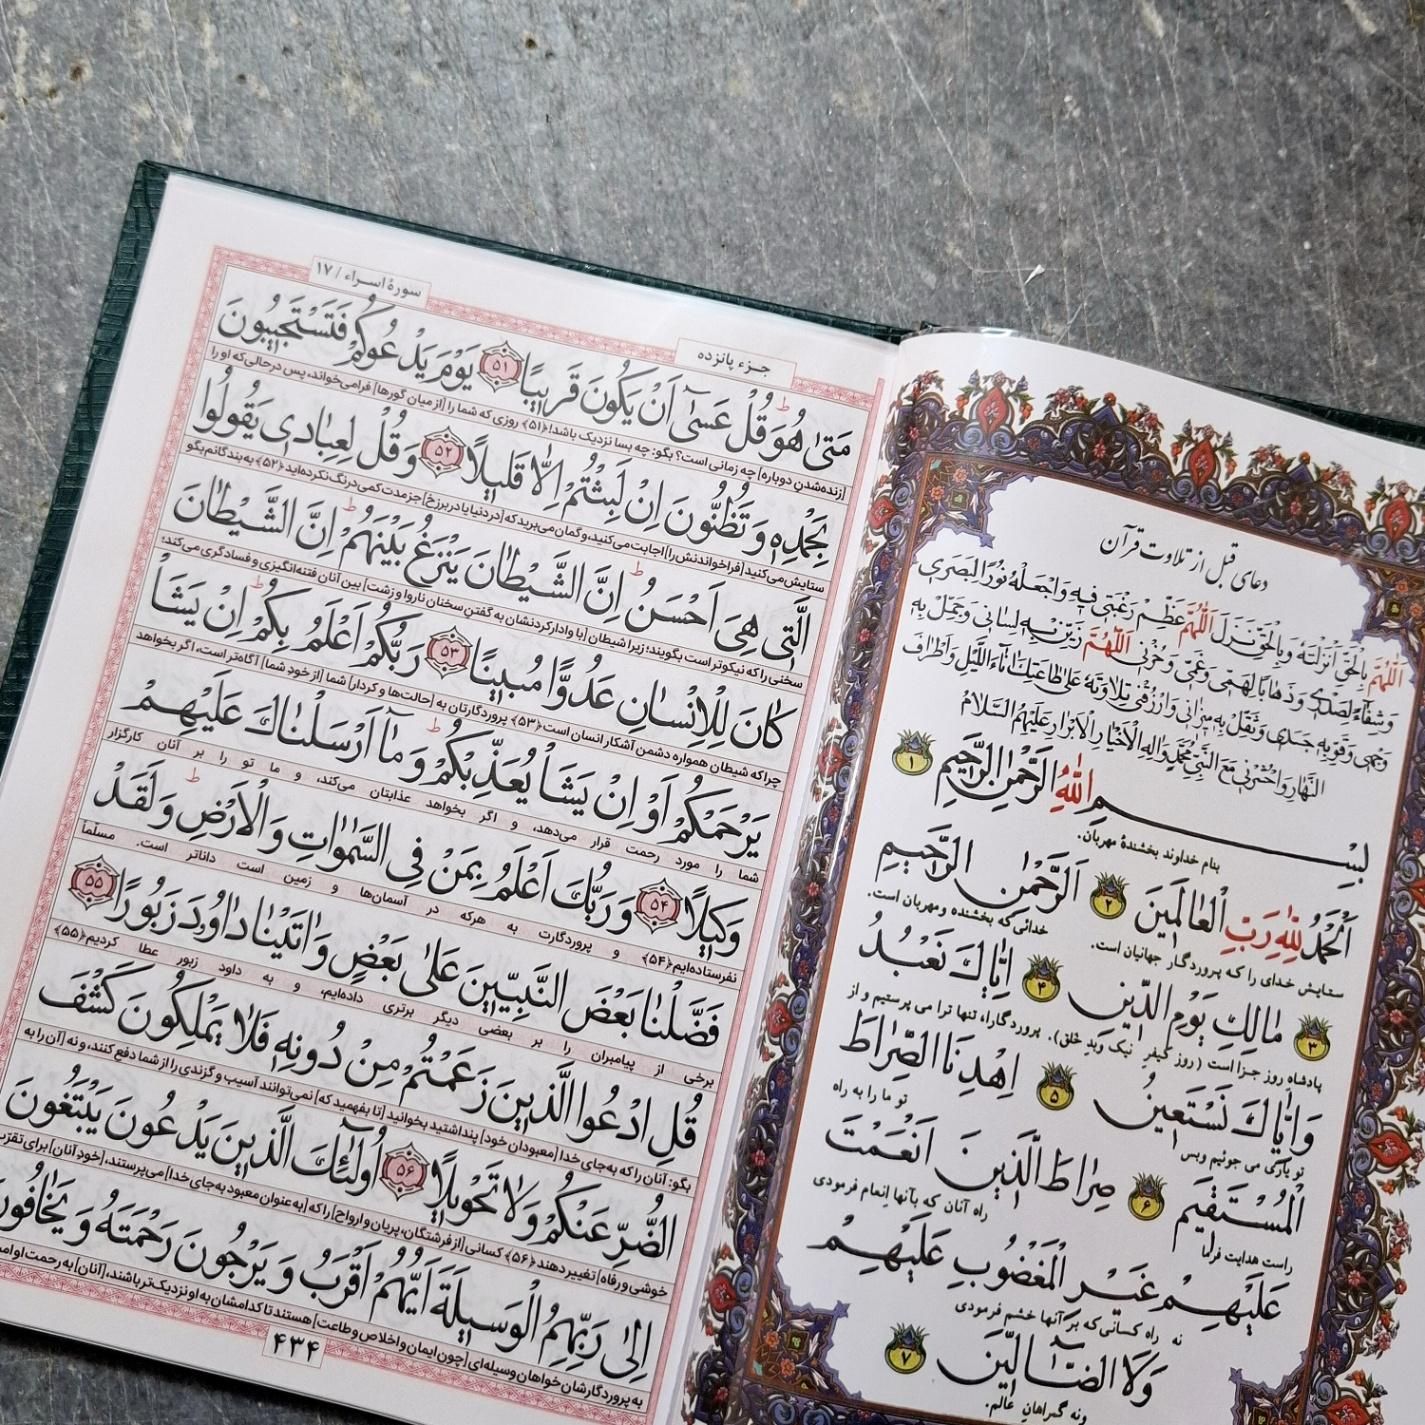 دعای قبل از تلاوت قرآن
اَللّٰهُمَّ بِالْحَقِّ اَنْزَلْتَهُ وَبِالْحَقِّ نَزَلَ اَللّٰهُمَّ عَظِّمْ رَغْبَتی فیهِ وَاجْعَلْهُ نُورًا لِبَصَری
وَشِفٰآءً لِصَدْری وَذَهٰابًا لِهَمّی وَغَمّی وَحُزْنی اَللّٰهُمَّ زَیِّنْ بِهِ لِسٰانی وَجَمِّلْ بِهِ
وَجْهی وَقَوِّ بِهِ جَسَدی وَثَقِّلْ بِهِ میزٰانی وَارْزُقْنی تِلٰاوَتَهُ عَلیٰ طٰاعَتِكَ اٰنٰآءَ اللَّیْلِ وَاَطْرٰافَ
النَّهٰارِ وَاحْشُرْنی مَعَ النَّبِیِّ مُحَمَّدٍ وَاٰلِهِ الْاَخْیٰارِ الْاَبْرٰارِ عَلَیْهِمُ السَّلٰامُ
بِسْمِ اللّٰهِ الرَّحْمٰنِ الرَّحیمِ ۱
بنام خداوند بخشندهٔ مهربان.
اَلْحَمْدُ لِلّٰهِ رَبِّ الْعٰالَمینَ ۲ اَلرَّحْمٰنِ الرَّحیمِ
ستایش خدای را که پروردگار جهانیان است. خدائی که بخشنده و مهربان است.
۳ مٰالِكِ یَوْمِ الدّینِ ۴ اِیّٰاكَ نَعْبُدُ
پادشاه روز جزا است (روز کیفر نیک وبد خلق). پروردگارا، تنها ترا می پرستیم و از
وَاِیّٰاكَ نَسْتَعینُ ۵ اِهْدِنَا الصِّرٰاطَ
تو یاری می جوئیم وبس تو ما را به راه
الْمُسْتَقیمَ ۶ صِرٰاطَ الَّذینَ اَنْعَمْتَ
راست هدایت فرما راه آنان که بآنها انعام فرمودی
عَلَیْهِمْ غَیْرِ الْمَغْضُوبِ عَلَیْهِمْ
نه راه کسانی که بر آنها خشم فرمودی
وَلَا الضّٰٓالّینَ ۷
ونه گمراهان عالم.
سورهٔ اسراء / ۱۷
جزء پانزده
مَتیٰ هُوَ قُلْ عَسیٰٓ اَنْ یَکُونَ قَریبًا ۵۱ یَوْمَ یَدْعُوکُمْ فَتَسْتَجیبُونَ
[زنده‌شدنِ دوباره] چه زمانی است؟ بگو: چه بسا نزدیک باشد! ﴿۵۱﴾ روزی که شما را [از میان گورها] فرامی‌خواند، پس درحالی‌که او را
بِحَمْدِهِ وَتَظُنُّونَ اِنْ لَبِثْتُمْ اِلّٰا قَلیلًا ۵۲ وَقُلْ لِعِبٰادی یَقُولُوا
ستایش می‌کنید [فراخواندنش را] اجابت می‌کنید، و گمان می‌برید که [در دنیا یا در برزخ] جز مدت کمی درنگ نکرده‌اید ﴿۵۲﴾ به بندگانم بگو
الَّتی هِیَ اَحْسَنُ اِنَّ الشَّیْطٰانَ یَنْزَغُ بَیْنَهُمْ اِنَّ الشَّیْطٰانَ
سخنی را که نیکوتر است بگویند؛ زیرا شیطان [با وادارکردنشان به گفتنِ سخنان ناروا و زشت] بین آنان فتنه‌انگیزی و فسادگری می‌کند؛
کٰانَ لِلْاِنْسٰانِ عَدُوًّا مُبینًا ۵۳ رَبُّکُمْ اَعْلَمُ بِکُمْ اِنْ یَشَاْ
چراکه شیطان همواره دشمن آشکار انسان است ﴿۵۳﴾ پروردگارتان به [حالت‌ها و کردارِ] شما [از خودِ شما] آگاه‌تر است، اگر بخواهد
یَرْحَمْکُمْ اَوْ اِنْ یَشَاْ یُعَذِّبْکُمْ وَمٰآ اَرْسَلْنٰاكَ عَلَیْهِمْ
شما را مورد رحمت قرار می‌دهد، و اگر بخواهد عذابتان می‌کند، و ما تو را بر آنان کارگزار
وَکیلًا ۵۴ وَرَبُّكَ اَعْلَمُ بِمَنْ فِی السَّمٰوٰاتِ وَالْاَرْضِ وَلَقَدْ
نفرستاده‌ایم ﴿۵۴﴾ و پروردگارت به هرکه در آسمان‌ها و زمین است داناتر است. مسلّماً
فَضَّلْنٰا بَعْضَ النَّبِیّینَ عَلیٰ بَعْضٍ وَاٰتَیْنٰا دٰاوُدَ زَبُورًا ۵۵
برخی از پیامبران را بر بعضی دیگر برتری داده‌ایم، و به داود زبور عطا کردیم ﴿۵۵﴾
قُلِ ادْعُوا الَّذینَ زَعَمْتُمْ مِنْ دُونِهِ فَلٰا یَمْلِکُونَ کَشْفَ
بگو: آنان را که به‌جای خدا [معبودان خود] پنداشتید بخوانید [تا بفهمید که] نمی‌توانند آسیب و گزندی را از شما دفع کنند، و نه [آن را به
الضُّرِّ عَنْکُمْ وَلٰا تَحْویلًا ۵۶ اُولٰٓئِكَ الَّذینَ یَدْعُونَ یَبْتَغُونَ
خوشی و رفاه] تغییر دهند ﴿۵۶﴾ کسانی [از فرشتگان، پریان و ارواح] را که [به‌عنوان معبود به‌جای خدا] می‌پرستند، [خودِ آنان] برای تقرّب
اِلیٰ رَبِّهِمُ الْوَسیلَةَ اَیُّهُمْ اَقْرَبُ وَیَرْجُونَ رَحْمَتَهُ وَیَخٰافُونَ
به پروردگارشان خواهان وسیله‌ای [چون ایمان و اخلاص و طاعت] هستند تا کدامشان به او نزدیک‌تر باشند، [آنان] به رحمت او
۴۳۴